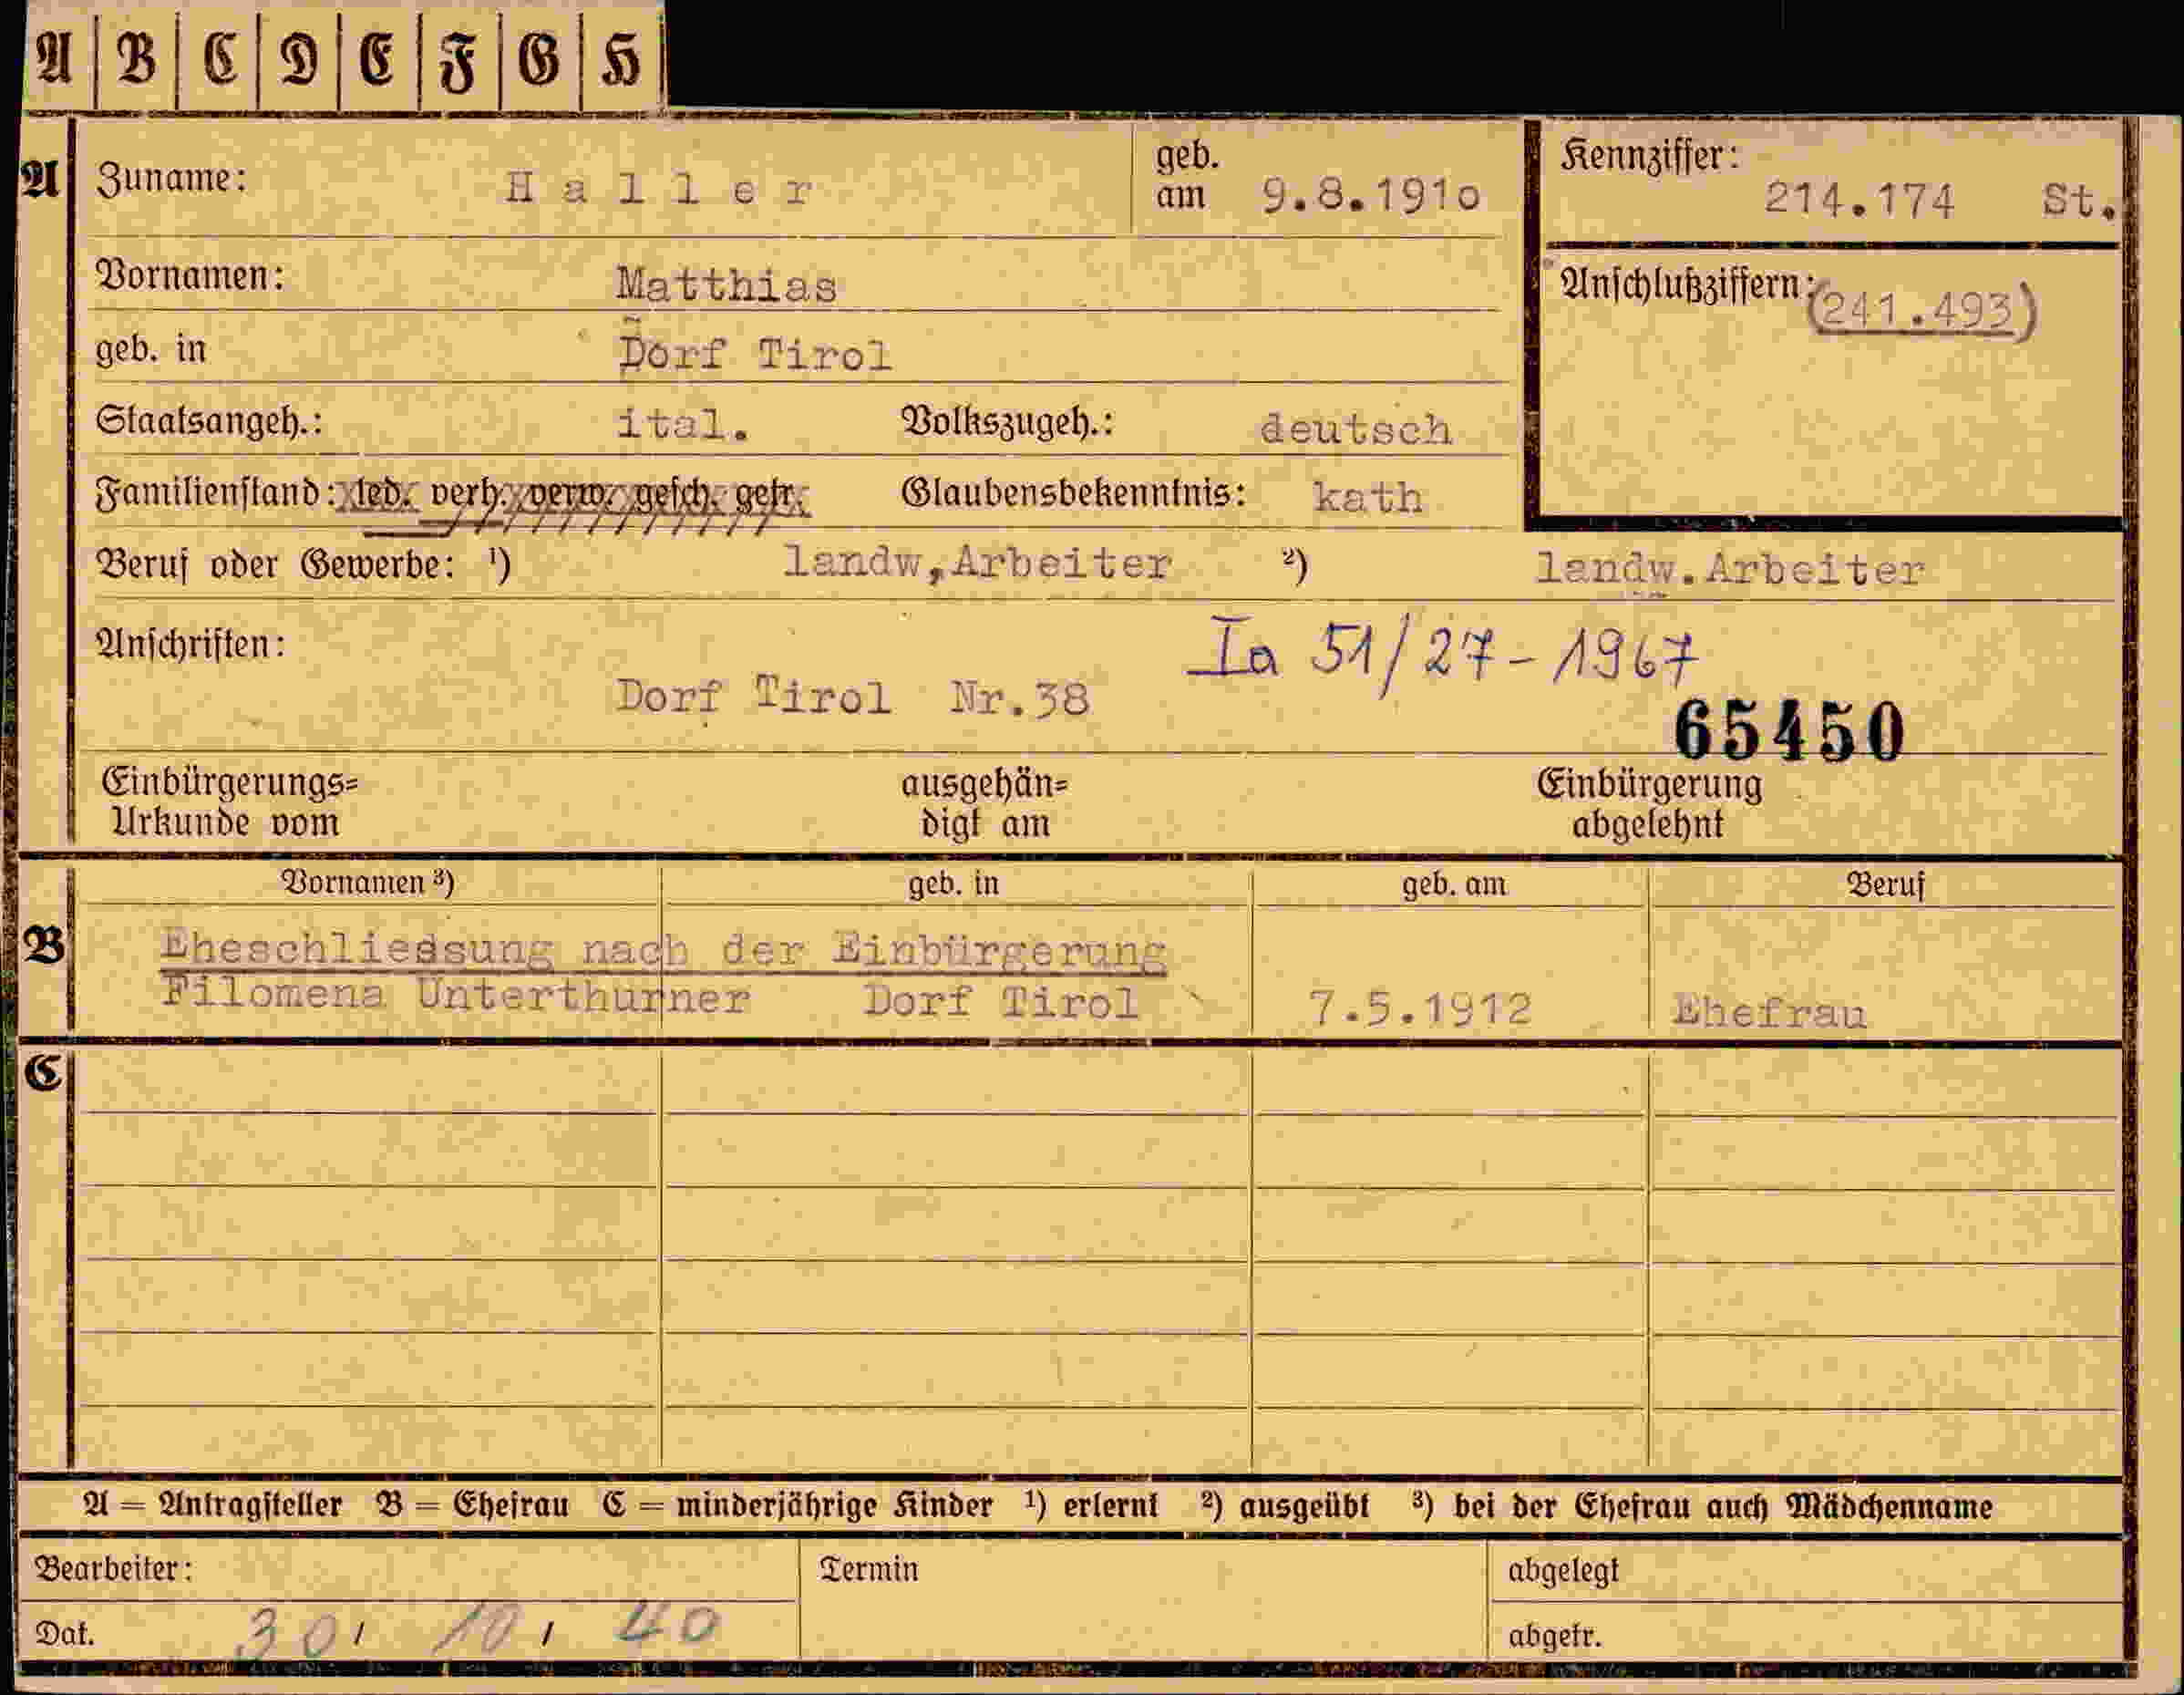 A B C D E F G H
A Zuname: Haller geb. am 9.8.1910 Kennziffer: 214.174 St.
Vornamen: Matthias Anschlußziffern: (241.493)
geb. in Dorf Tirol
Staatsangeh.: ital. Volkszugeh.: deutsch
Familienstand: led. verh. verw. gesch. getr. Glaubensbekenntnis: kath
Beruf oder Gewerbe: ¹) landw,Arbeiter ²) landw.Arbeiter
Anschriften: Ia 51/27-1967
Dorf Tirol Nr.38
65450
Einbürgerungs= ausgehän= Einbürgerung
Urkunde vom digt am abgelehnt
Vornamen ³) geb. in geb. am Beruf
B Eheschliessung nach der Einbürgerung
Filomena Unterthurner Dorf Tirol 7.5.1912 Ehefrau
C
A = Antragsteller B = Ehefrau C = minderjährige Kinder ¹) erlernt ²) ausgeübt ³) bei der Ehefrau auch Mädchenname
Bearbeiter: Termin abgelegt
Dat. 30/ 10/ 40 abgetr.